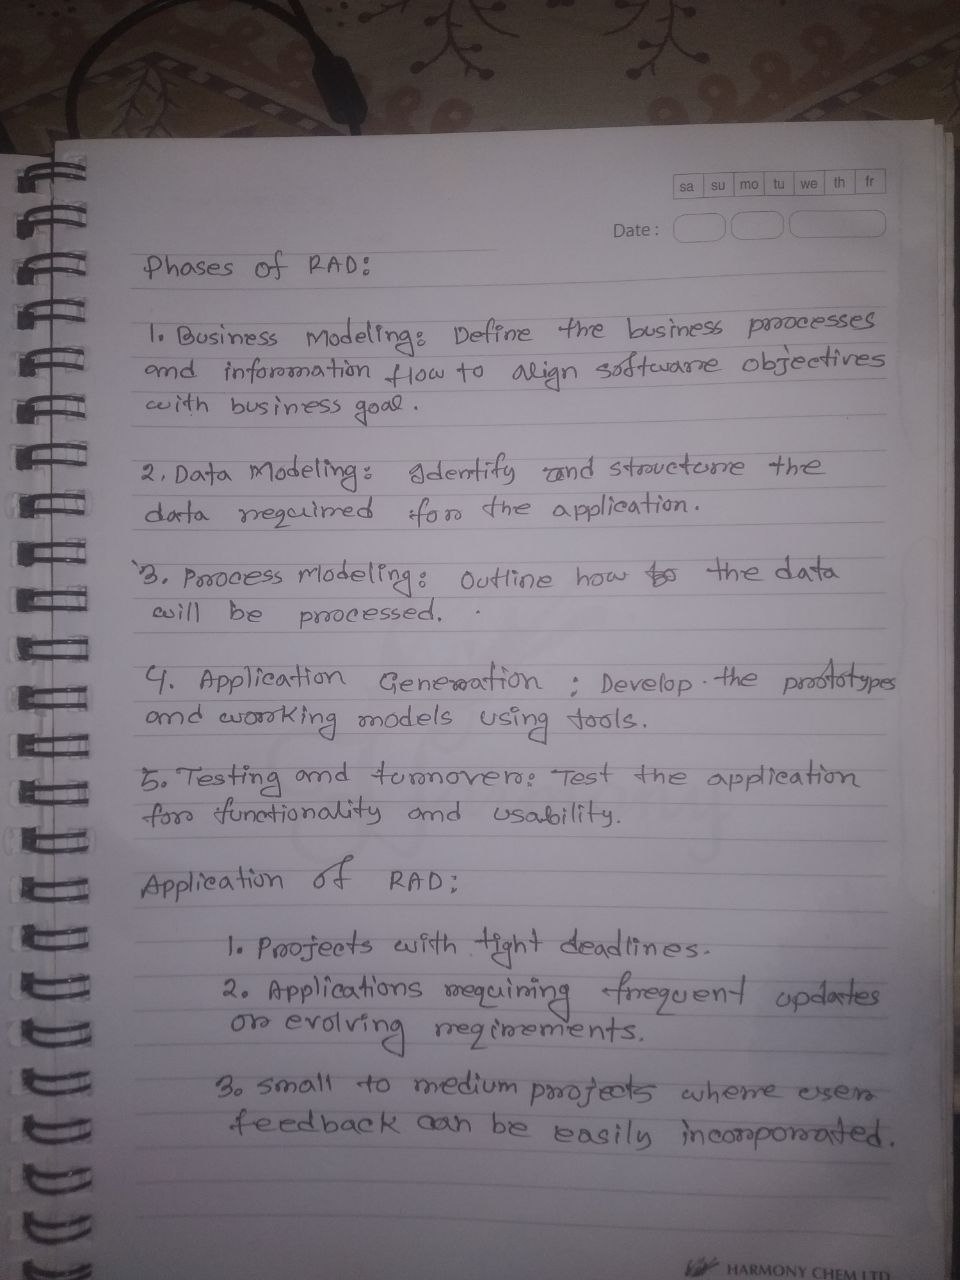 sa su mo tu we th fr
Date :
Phases of RAD:
1. Business Modeling: Define the business processes
and information flow to align software objectives
with business goal.
2. Data Modeling: Identify and structure the
data required for the application.
3. Process Modeling: Outline how the data
will be processed.
4. Application Generation : Develop the prototypes
and working models using tools.
5. Testing and turnover: Test the application
for functionality and usability.
Application of RAD:
1. Projects with tight deadlines.
2. Applications requiring frequent updates
or evolving reqirements.
3. Small to medium projects where user
feedback can be easily incorporated.
HARMONY CHEM LTD